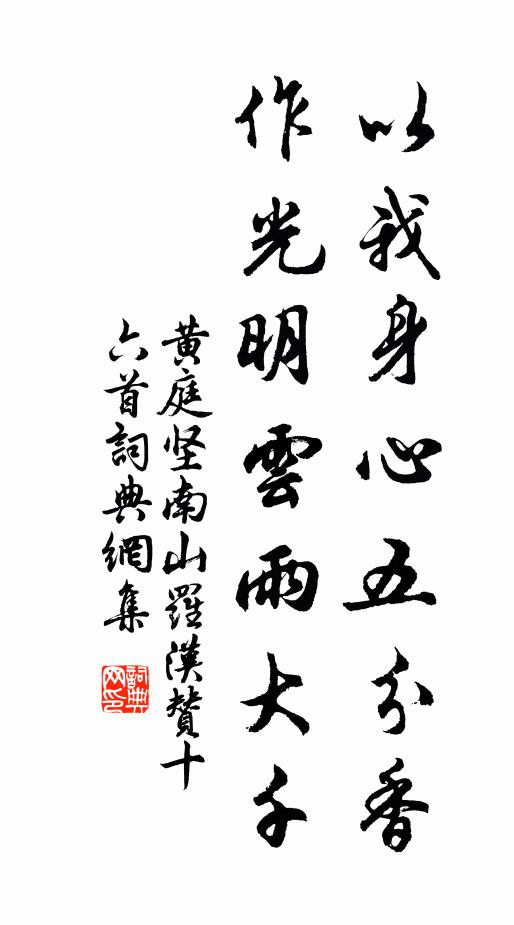 以我身心五分香
作光明雲雨大千
黄庭坚南山羅漢贊十
六首詞典網集
詞典
网印